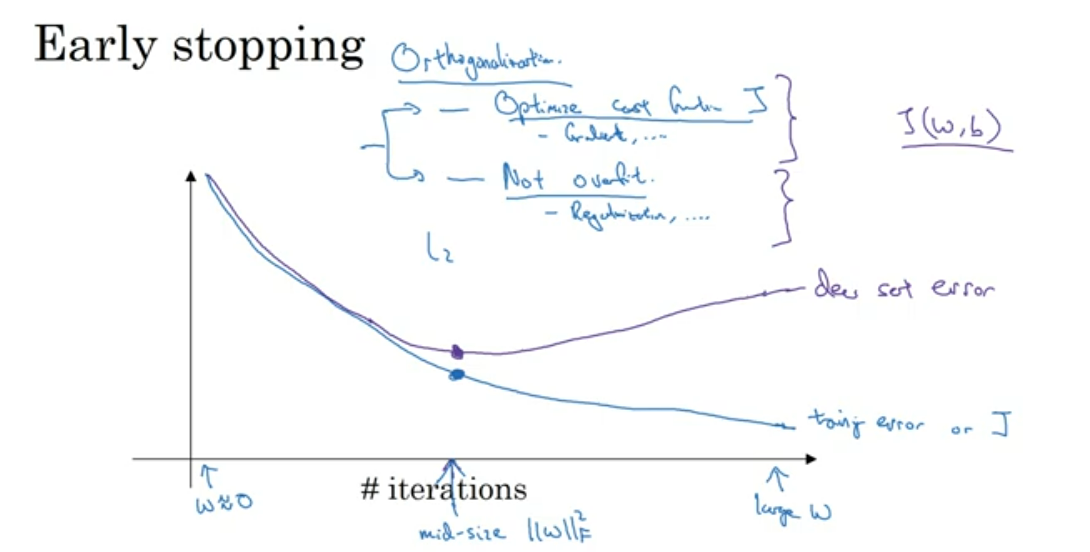 Early stopping
Orthogonalization.
— Optimize cost function J
- Gradient, ....
J(w,b)
— Not overfit.
- Regularization, ....
L2
dev set error
training error or J
w≈0
# iterations
large w
mid-size ||w||²_F